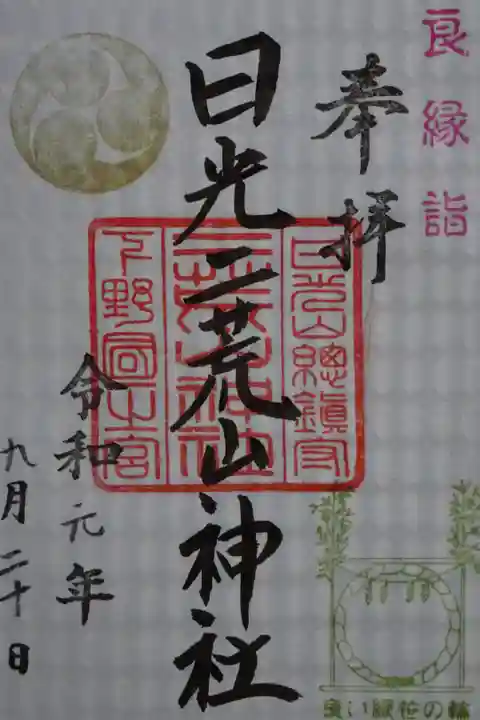 良縁詣
奉拝
日光山總鎮守
日光二荒山神社
二荒山神社
下野國一之宮
令和元年
九月二十日
良い縁笹の輪